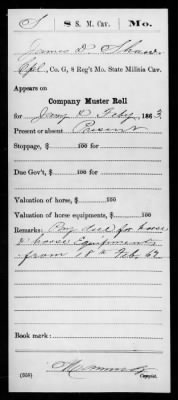 S | 8 S. M. Cav. | Mo.
James D. Shaw
Cpl, Co. G, 8 Reg't Mo. State Militia Cav.
Appears on
Company Muster Roll
for Jany & Feby, 1863.
Present or absent Present
Stoppage, $ 100 for
Due Gov't, $ 100 for
Valuation of horse, $ 100
Valuation of horse equipments, $ 100
Remarks: Pay due for horse
& horse Equipments
from 18th Feb 62
Book mark:
(358)
Copyist.